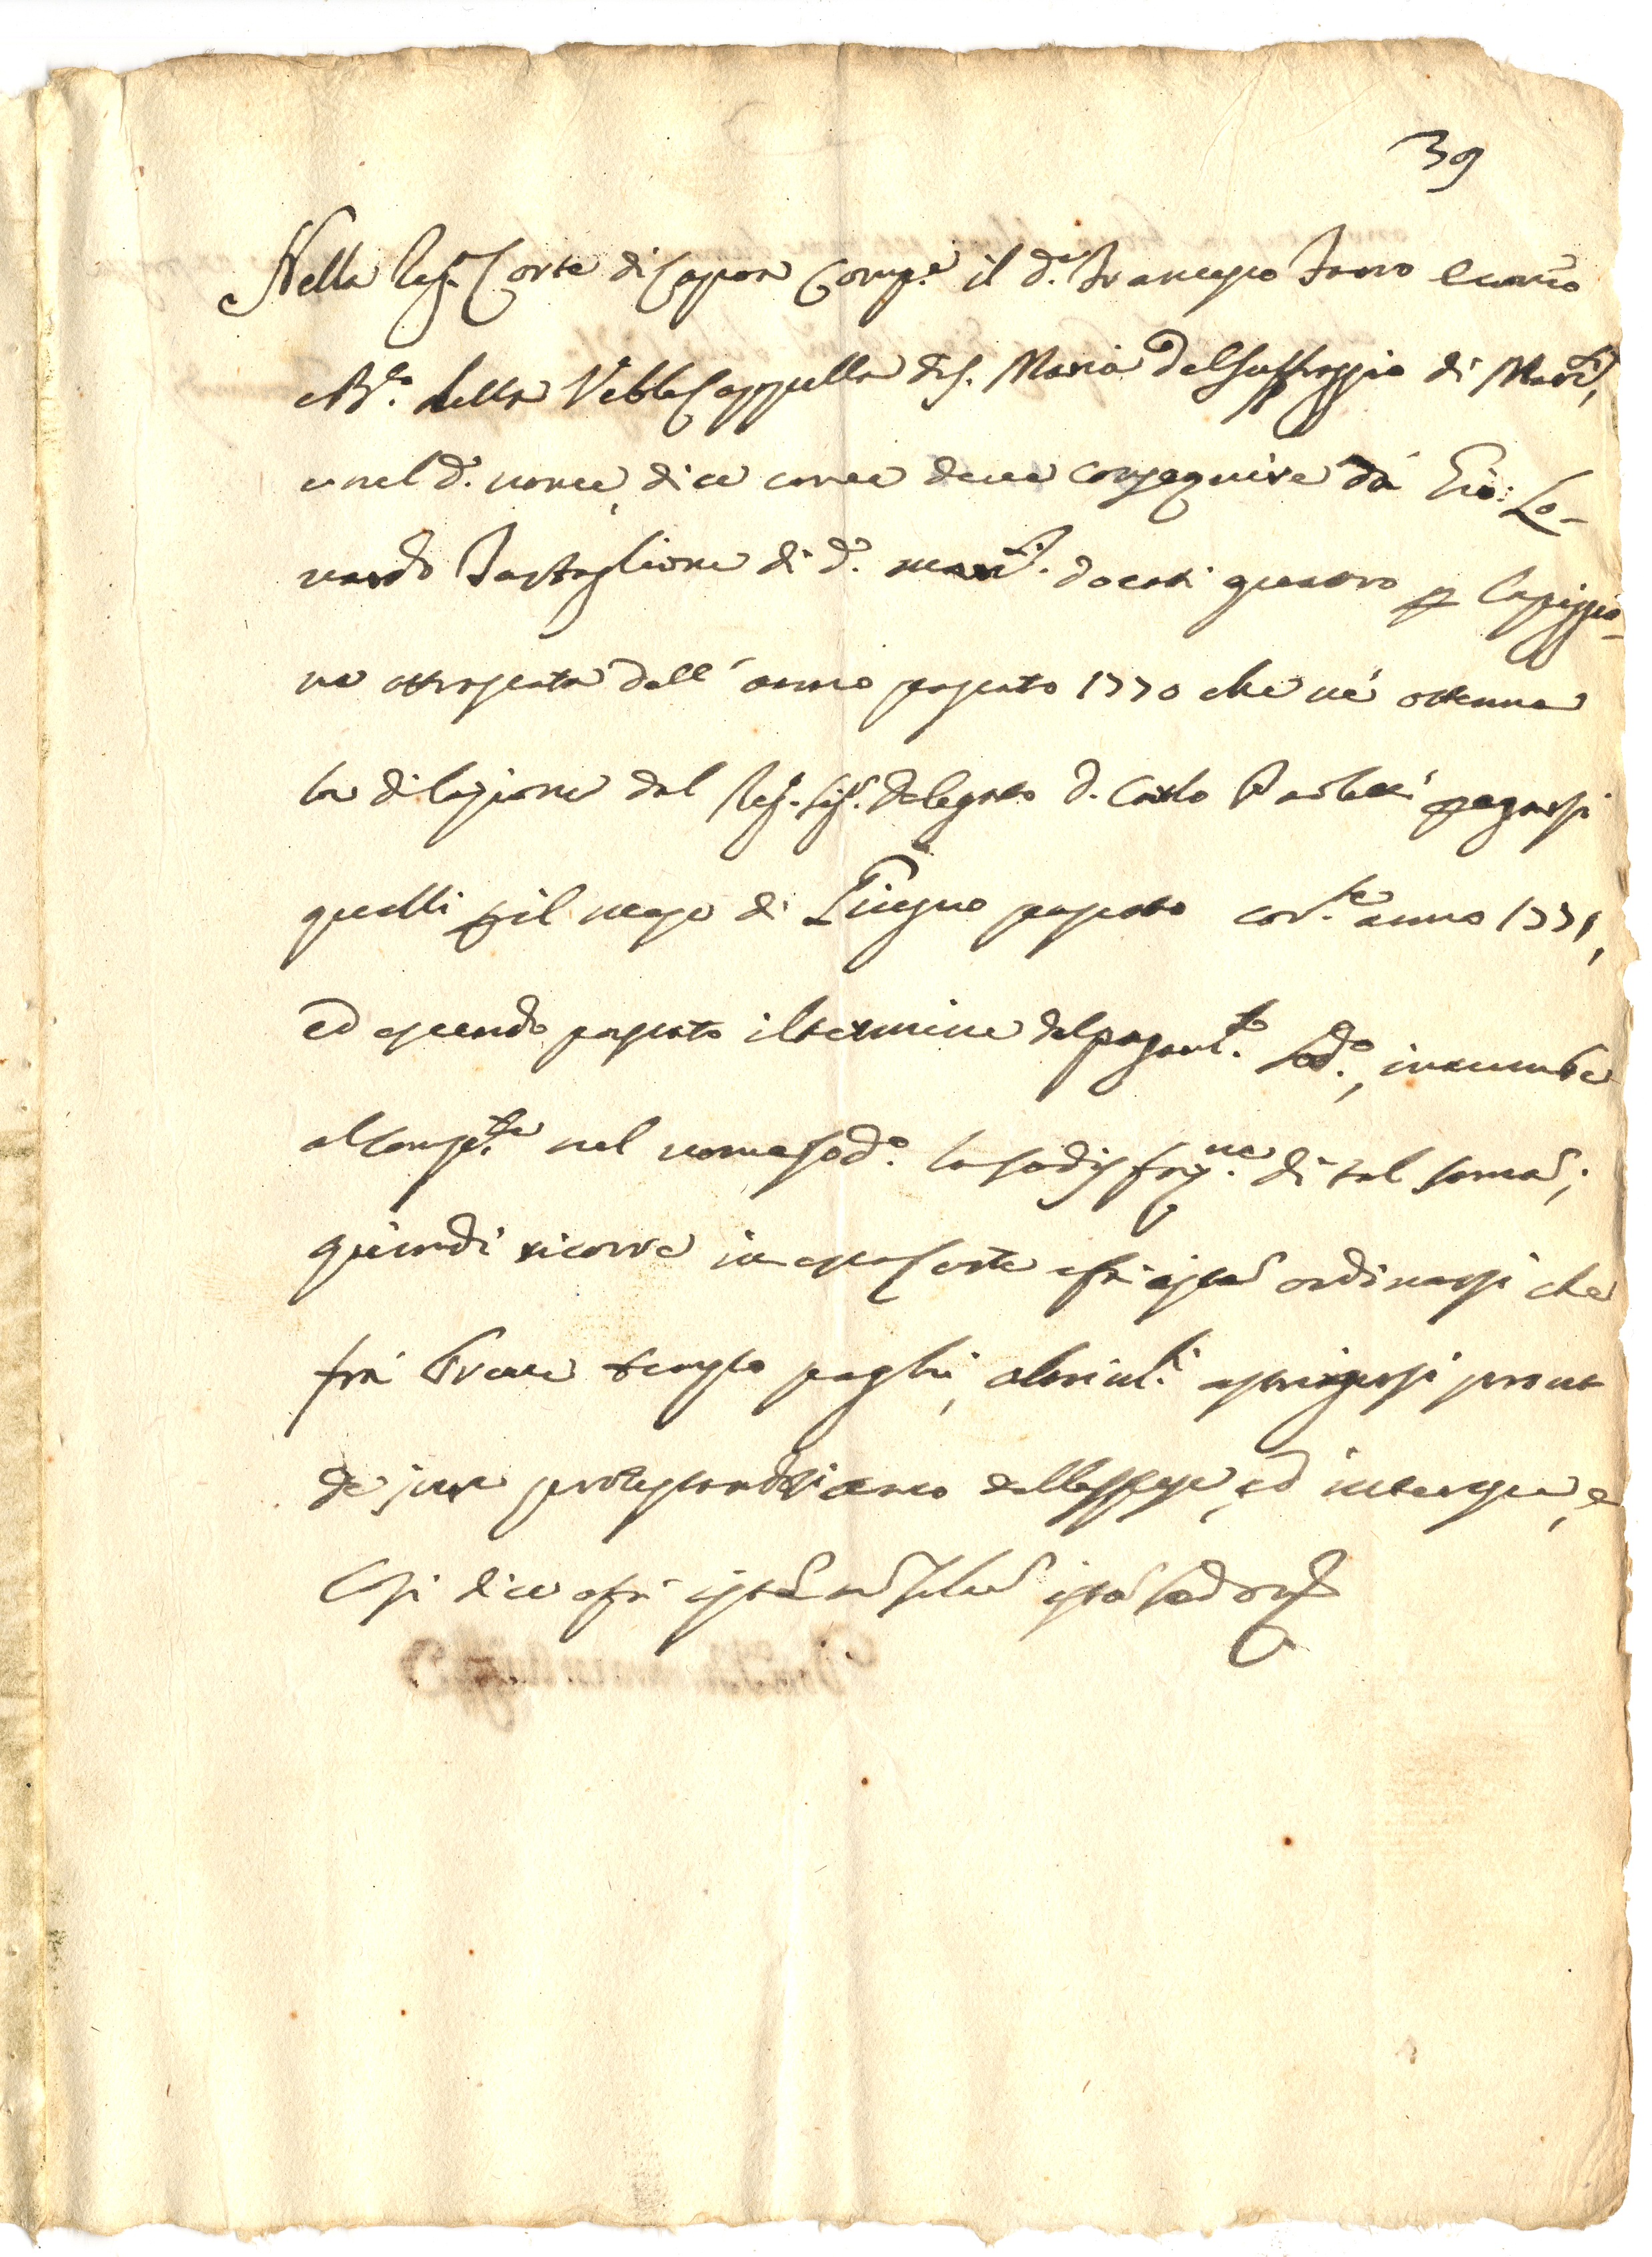 39
Nella Reg.a Corte di Capoa Comp.e il d.r Francesco Iovro
della Vēble Cappella di S. Maria del Suffraggio di Marti,
e nel d.o nome, dice come deve conseguire da Gio: Lo-
nardo Tartaglione di d.o docati quattro p la piggio-
ne attrasata dell'anno passato 1770 che né ottenne
la dilazione dal Reg.o Sig.r Delegato D. Carlo pagarsi
quelli p il mese di Giugno passato cor.te anno 1771,
ed essendo passato il termine del pagam.to sod.o, incumbe
al comp.te nel nome sod.o la sodisfaz.ne di tal soma;
quindi ricorre in essa Corte e fà istā ordinarsi che
frà breve tempo paghi, altrim.ti astringersi prout
de jure protestandosi anco delle spese, ed interesse, e
Così dice e fà istā